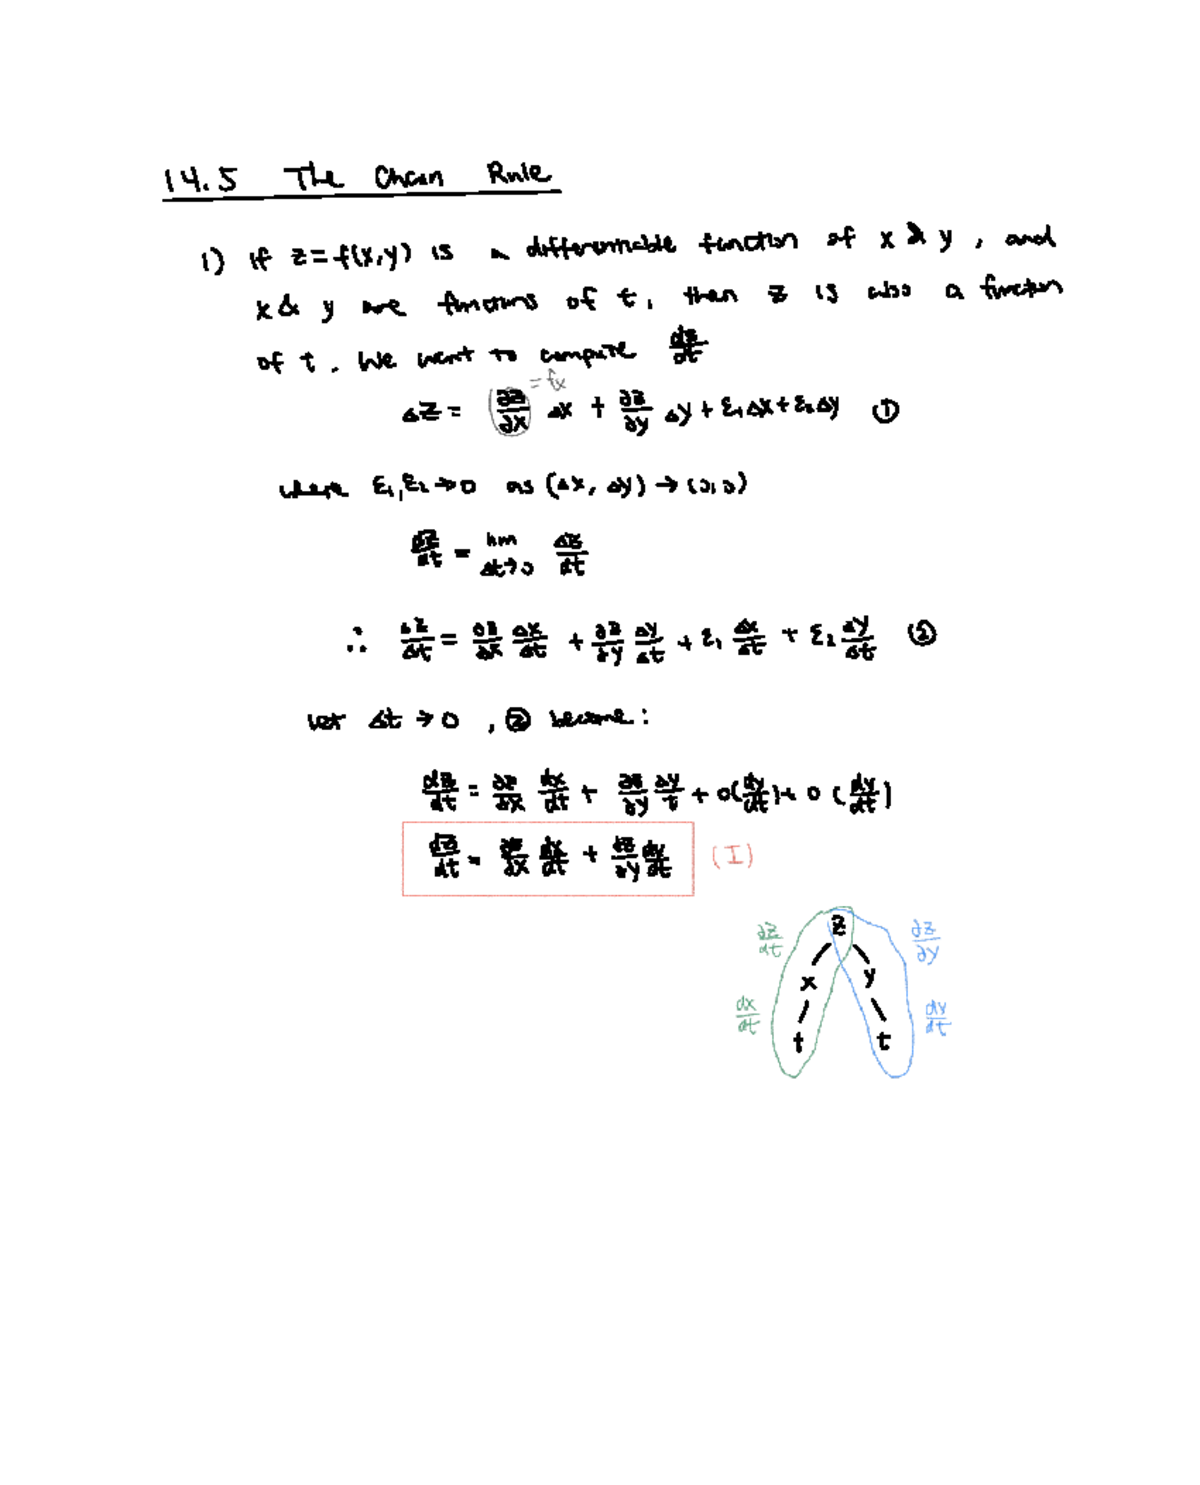 14.5 The Chain Rule
1) if z=f(x,y) is a differentiable function of x & y, and
x & y are functions of t, then z is also a function
of t. We want to compute dz/dt
= fx
Δz = ∂z/∂x Δx + ∂z/∂y Δy + ε₁Δx + ε₂Δy ①
where ε₁,ε₂→0 as (Δx, Δy) → (0,0)
dz/dt = lim Δt→0 Δz/dt
∴ Δz/Δt = ∂z/∂x Δx/Δt + ∂z/∂y Δy/Δt + ε₁ Δx/Δt + ε₂ Δy/Δt ②
Let Δt → 0, ② become:
dz/dt = ∂z/∂x dx/dt + ∂z/∂y + 0(dy/dt) + 0(dy/dt)
dz/dt = ∂z/∂x dx/dt + ∂z/∂y dy/dt (I)
z
∂z/dt ∂z/∂y
x y
dx/dt dy/dt
t t